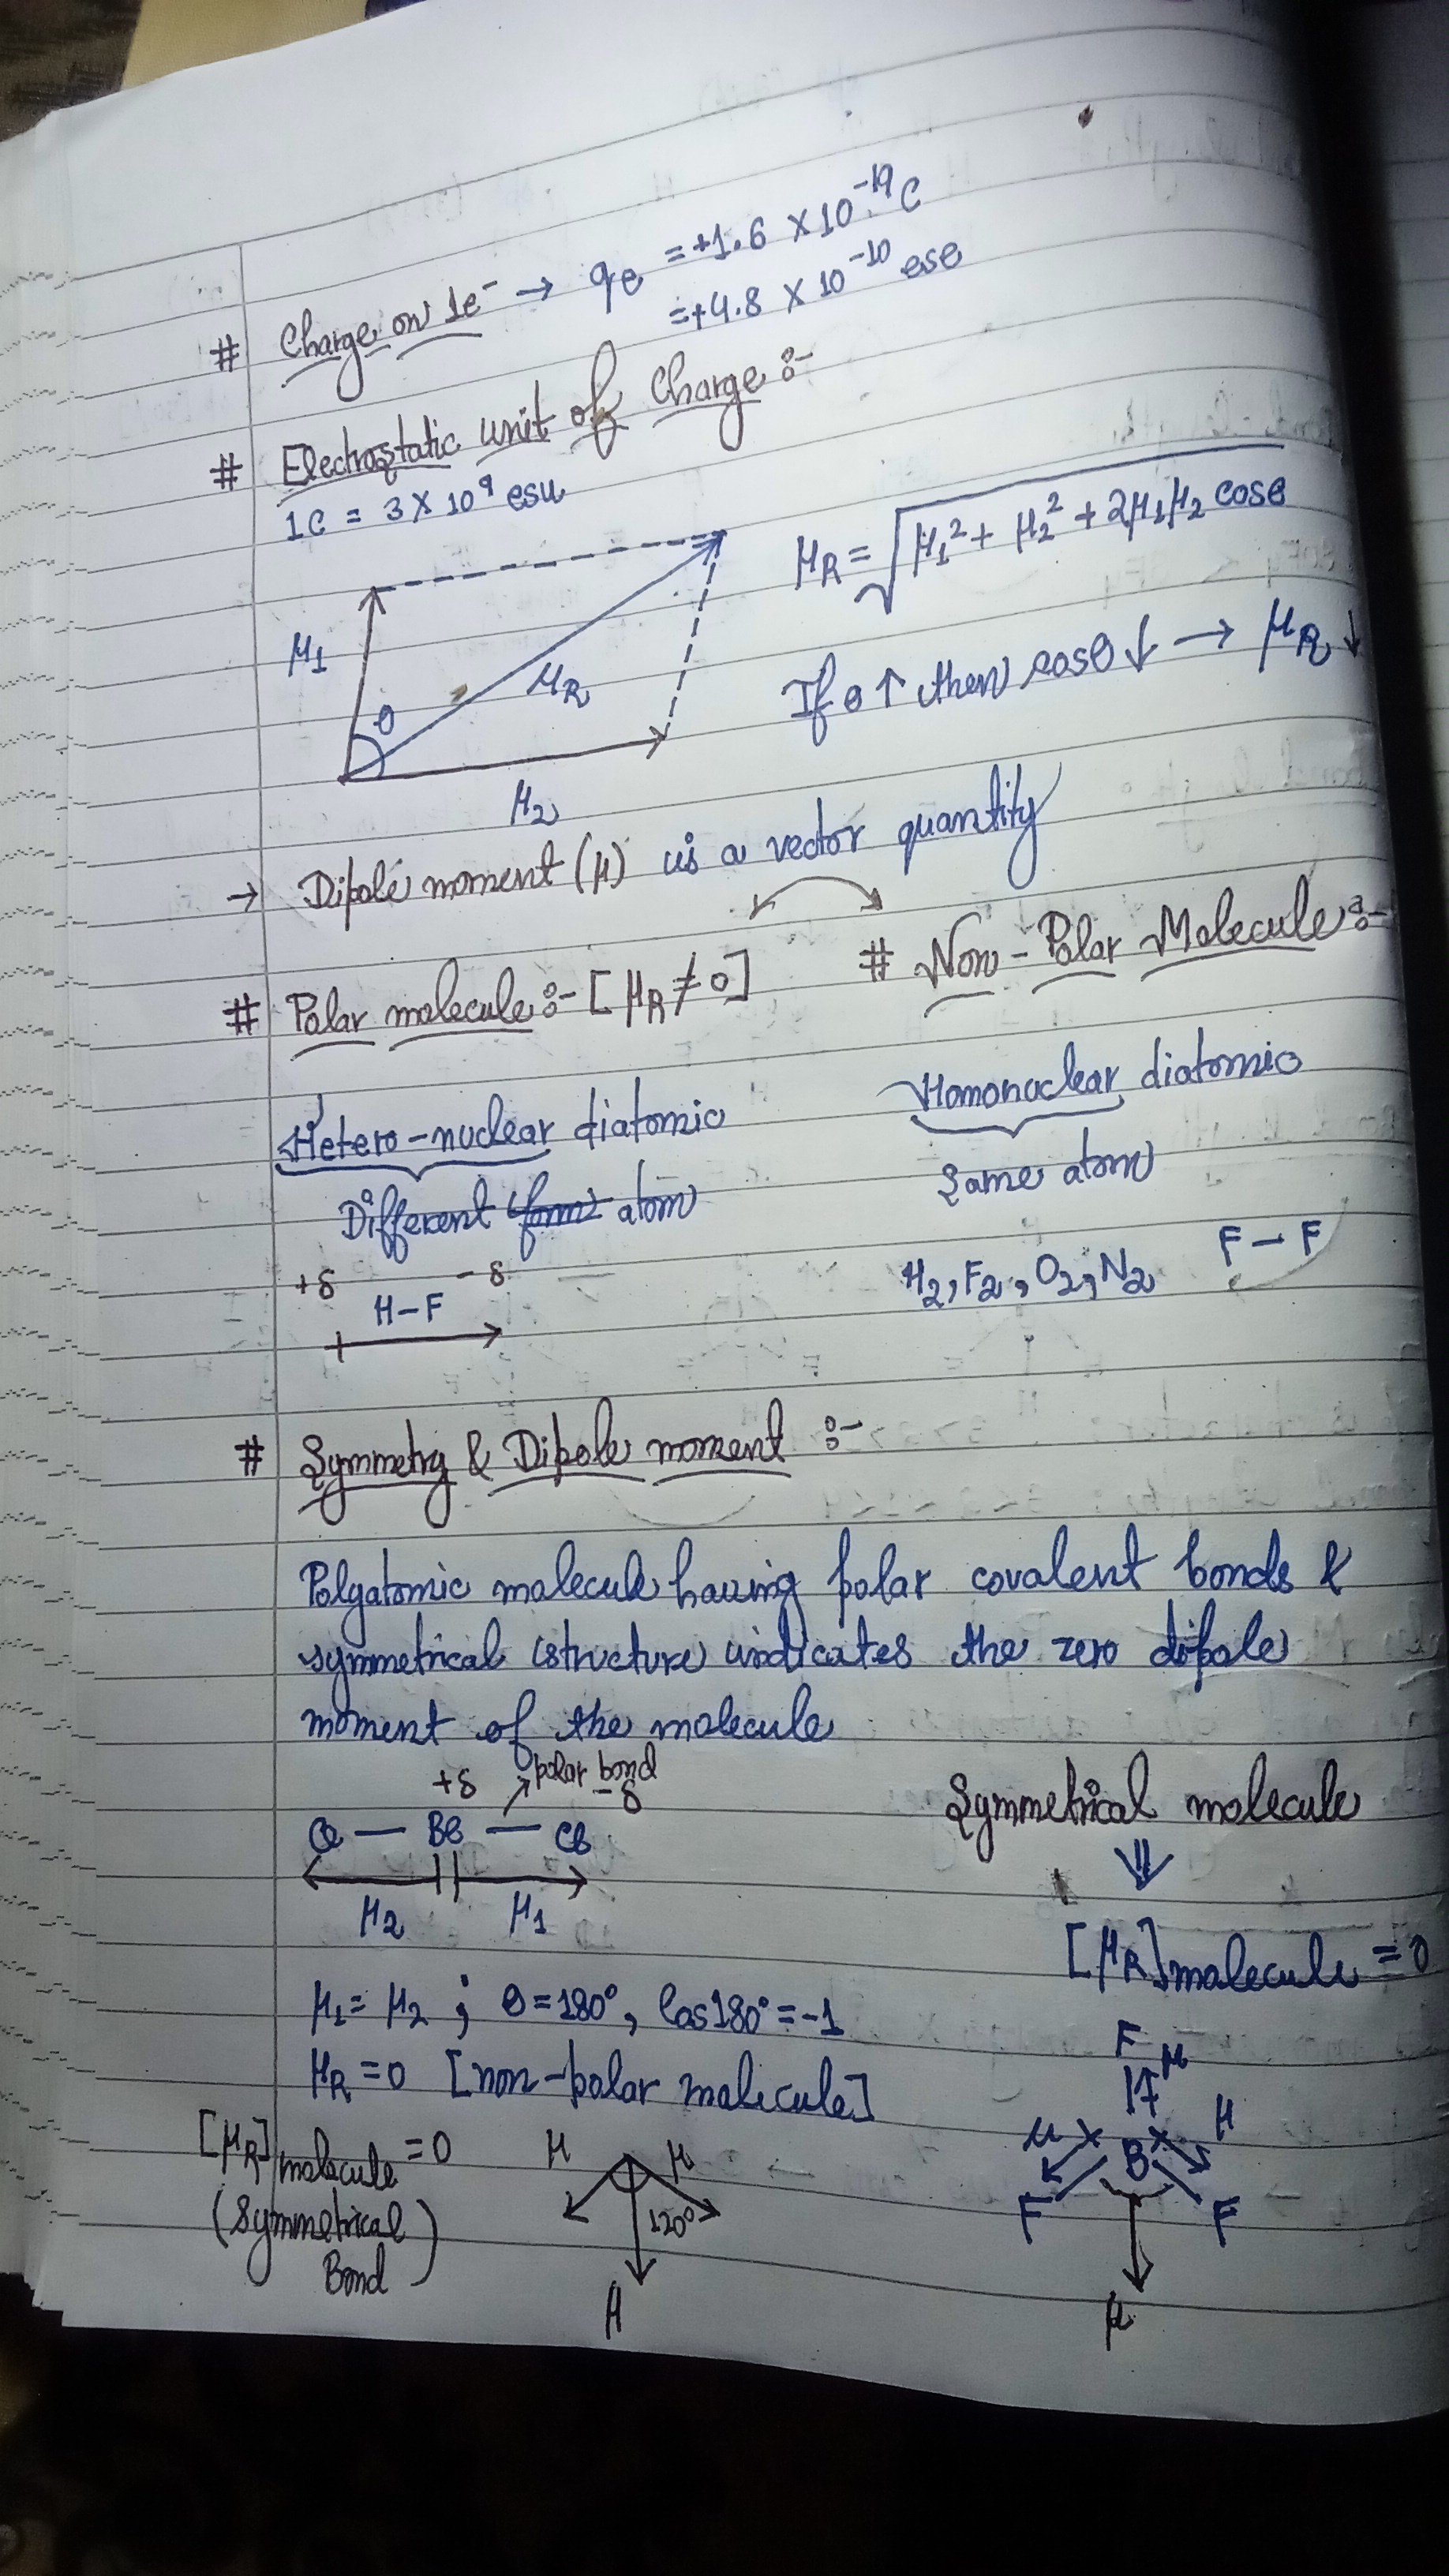 # Charge on 1e⁻ → qe = +1.6 × 10⁻¹⁹ C
= +4.8 × 10⁻¹⁰ ese
# Electrostatic unit of Charge :-
1C = 3 × 10⁹ esu
μR = √(μ₁² + μ₂² + 2μ₁μ₂ cosθ)
μ₁
θ
μR
If θ ↑ then cosθ ↓ → μR ↓
μ₂
→ Dipole moment (μ) is a vector quantity
# Polar molecule :- [μR ≠ 0]
# Non-Polar Molecule :-
Hetero-nuclear diatomic
Homonuclear diatomic
Different form atom
Same atom
+δ -δ
H–F
H₂, F₂, O₂, N₂
F – F
# Symmetry & Dipole moment :-
Polyatomic molecule having polar covalent bonds &
symmetrical structure indicates the zero dipole
moment of the molecule
+δ polar bond
-δ
Cl — Be — Cl
μ₂ μ₁
Symmetrical molecule
⇓
[μR]molecule = 0
μ₁ = μ₂ ; θ = 180°, Cos180° = -1
μR = 0 [non-polar molecule]
[μR]molecule = 0
(Symmetrical
Bond)
μ μ
120°
μ
F
μ
μ μ
B
F F
μ